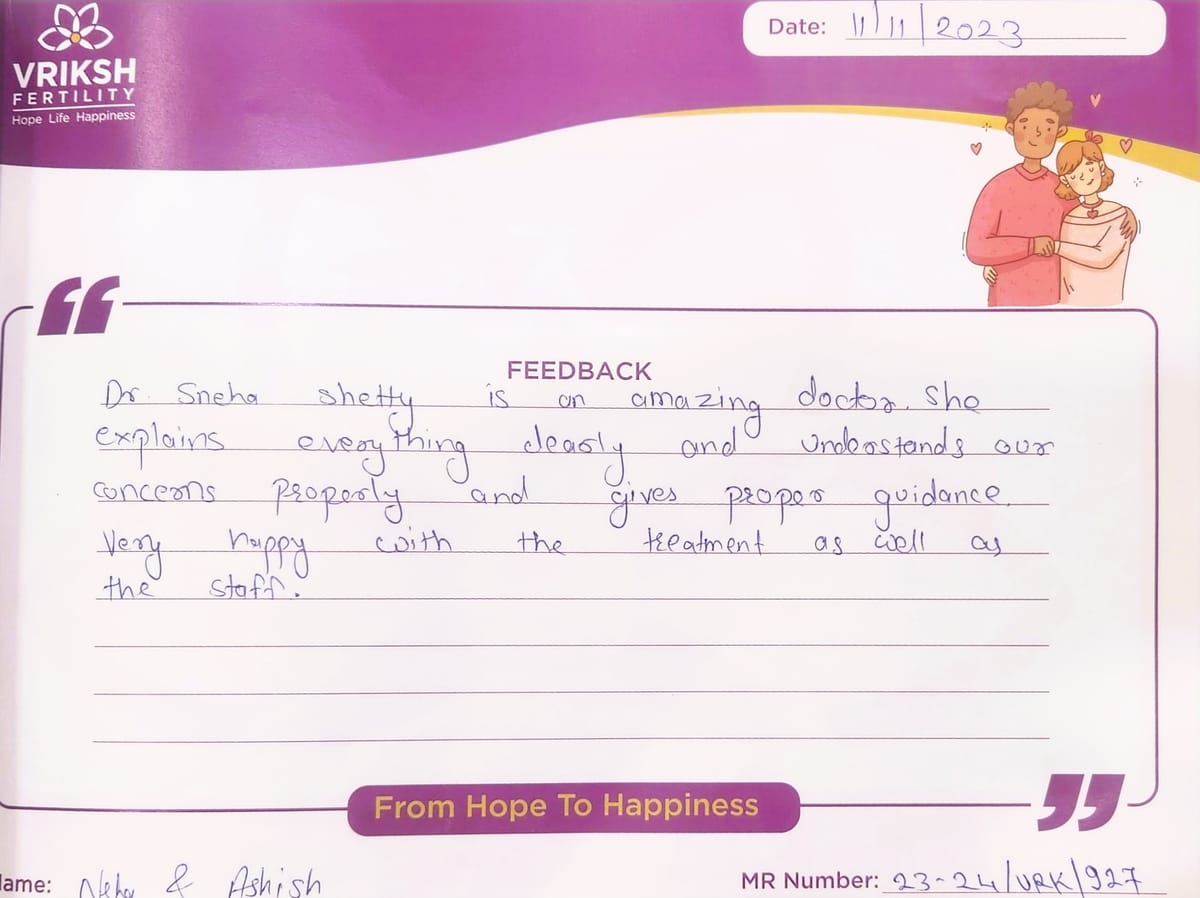 VRIKSH
FERTILITY
Hope Life Happiness
Date: 11/11/2023
FEEDBACK
Dr. Sneha shetty is an amazing doctor. She
explains everything clearly and understands our
concerns properly and gives proper guidance.
Very happy with the treatment as well as
the staff.
From Hope To Happiness
Name: Neha & Ashish
MR Number: 23-24/VRK/927